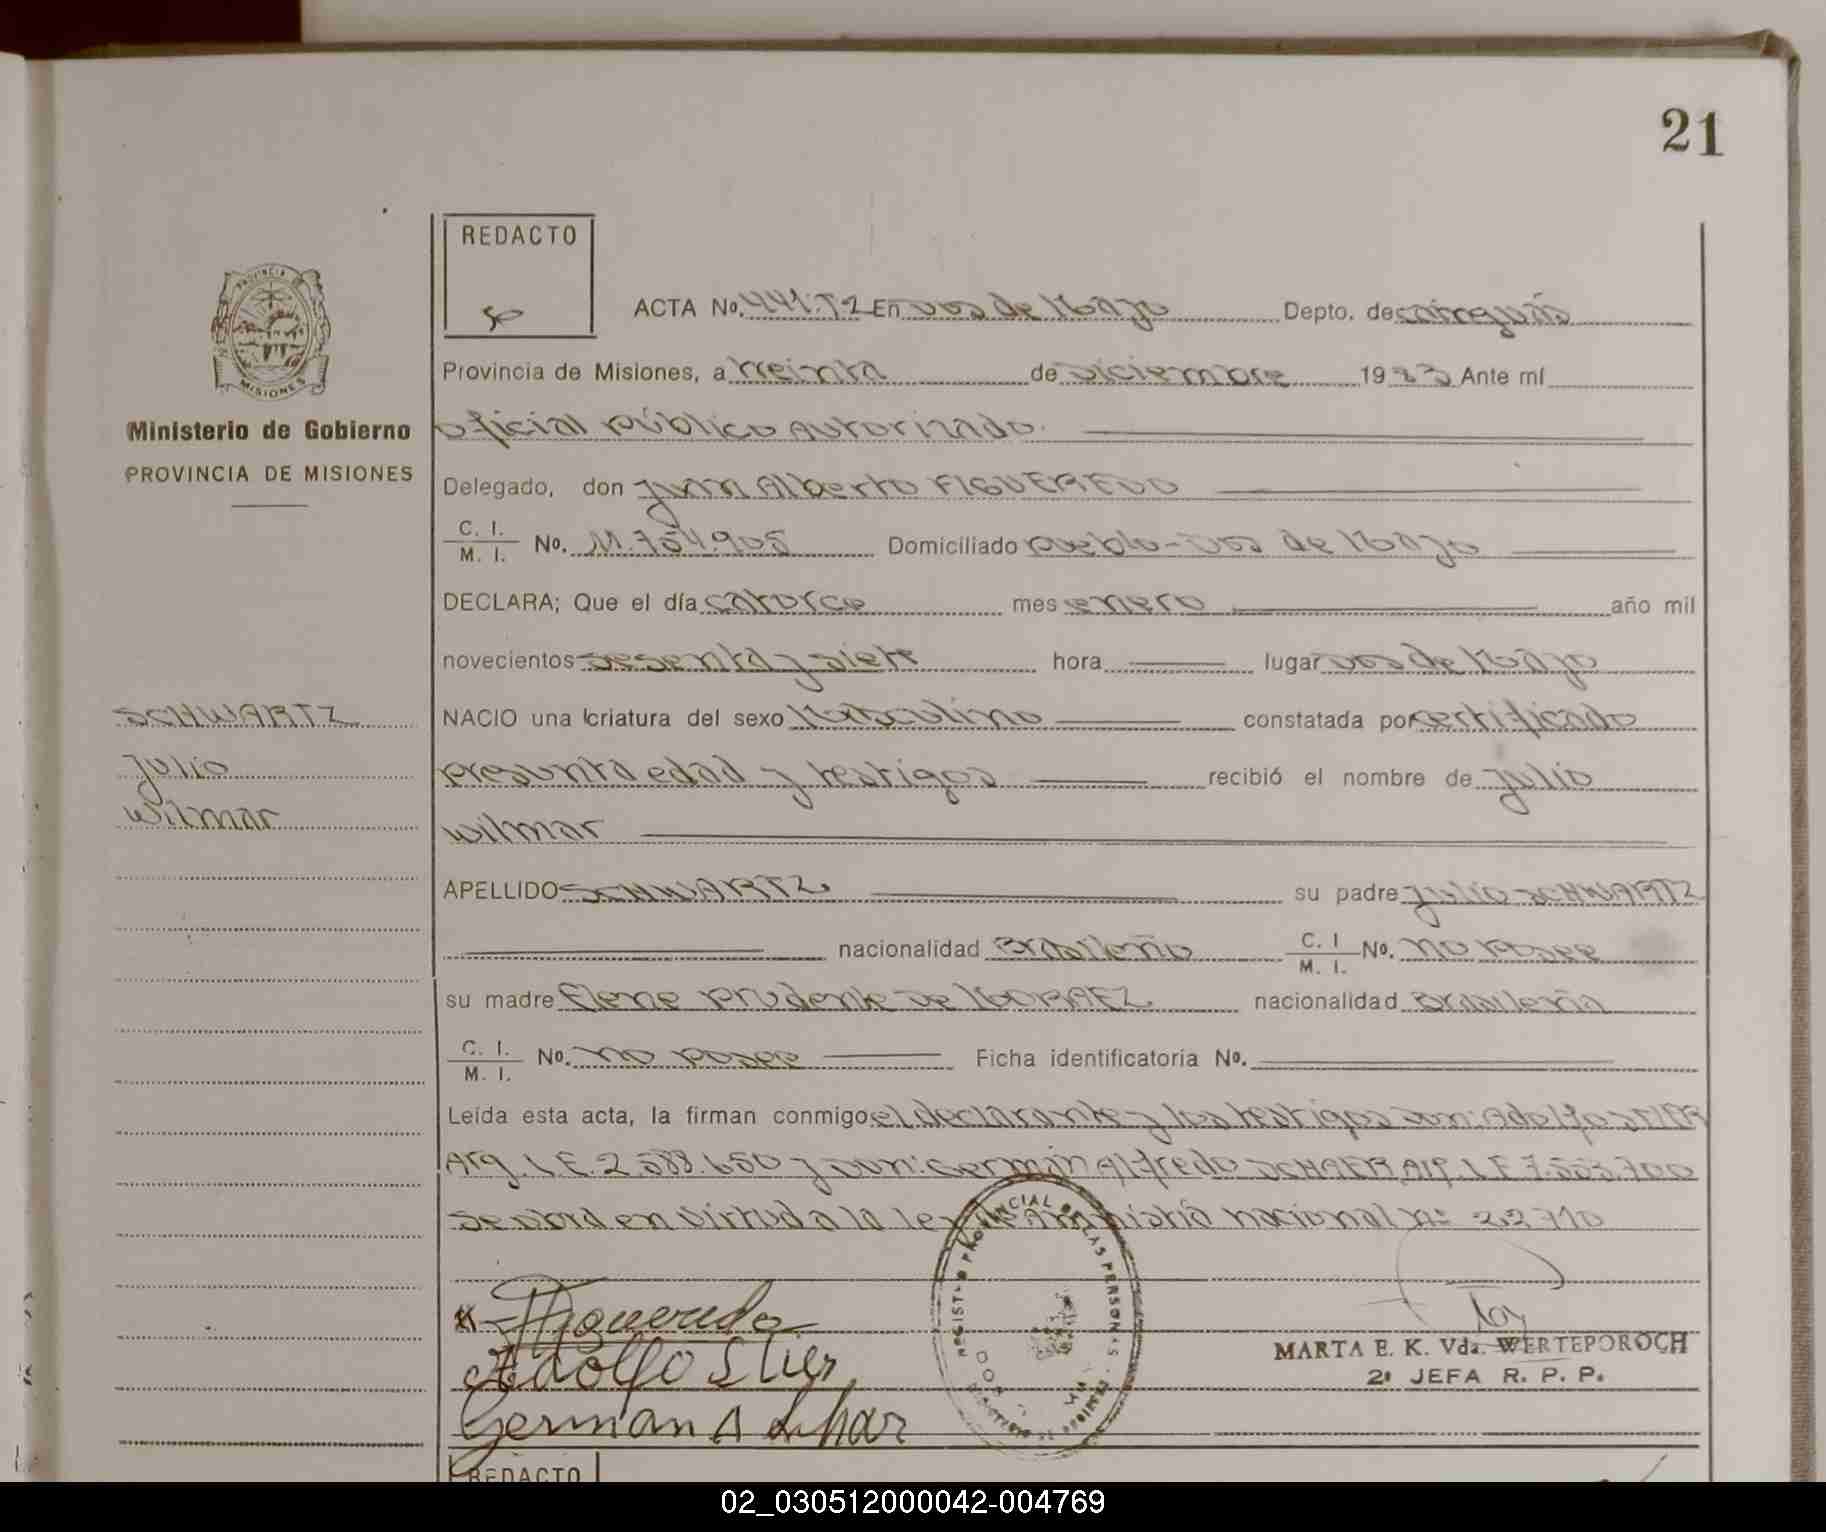 21
REDACTO
ACTA No. 441. T2 En Dos de Mayo Depto. de Cainguás
Provincia de Misiones, a treinta de diciembre 1983 Ante mí
oficial público autorizado.
Ministerio de Gobierno
PROVINCIA DE MISIONES
Delegado, don Juan Alberto FIGUEREDO
C. I. / M. I. No. M. 7.541.905 Domiciliado pueblo - Dos de Mayo
DECLARA; Que el día catorce mes enero año mil
novecientos sesenta y siete hora lugar Dos de Mayo
SCHWARTZ
NACIO una criatura del sexo Masculino constatada por certificado
Julio
presunta edad y testigos recibió el nombre de Julio
Wilmar
Wilmar
APELLIDO SCHWARTZ su padre Julio SCHWARTZ
nacionalidad Brasileño C. I / M. I. No. no posee
su madre Elene prudente de MORAEZ nacionalidad Brasileña
C. I. / M. I. No. no posee Ficha identificatoria No.
Leída esta acta, la firman conmigo el declarante y los testigos don: Adolfo
Arg. L.E. 2.588.650 y don: German Alfredo SCHAER, Arg. L.E 7.553.700
se labra en virtud a la ley de amnistía nacional Nº 22710
Figueredo
Adolfo
German A
REGISTRO PROVINCIAL DE LAS PERSONAS
MARTA E. K. Vda. WERTEPOROCH
2ª JEFA R. P. P.
REDACTO
02_030512000042-004769